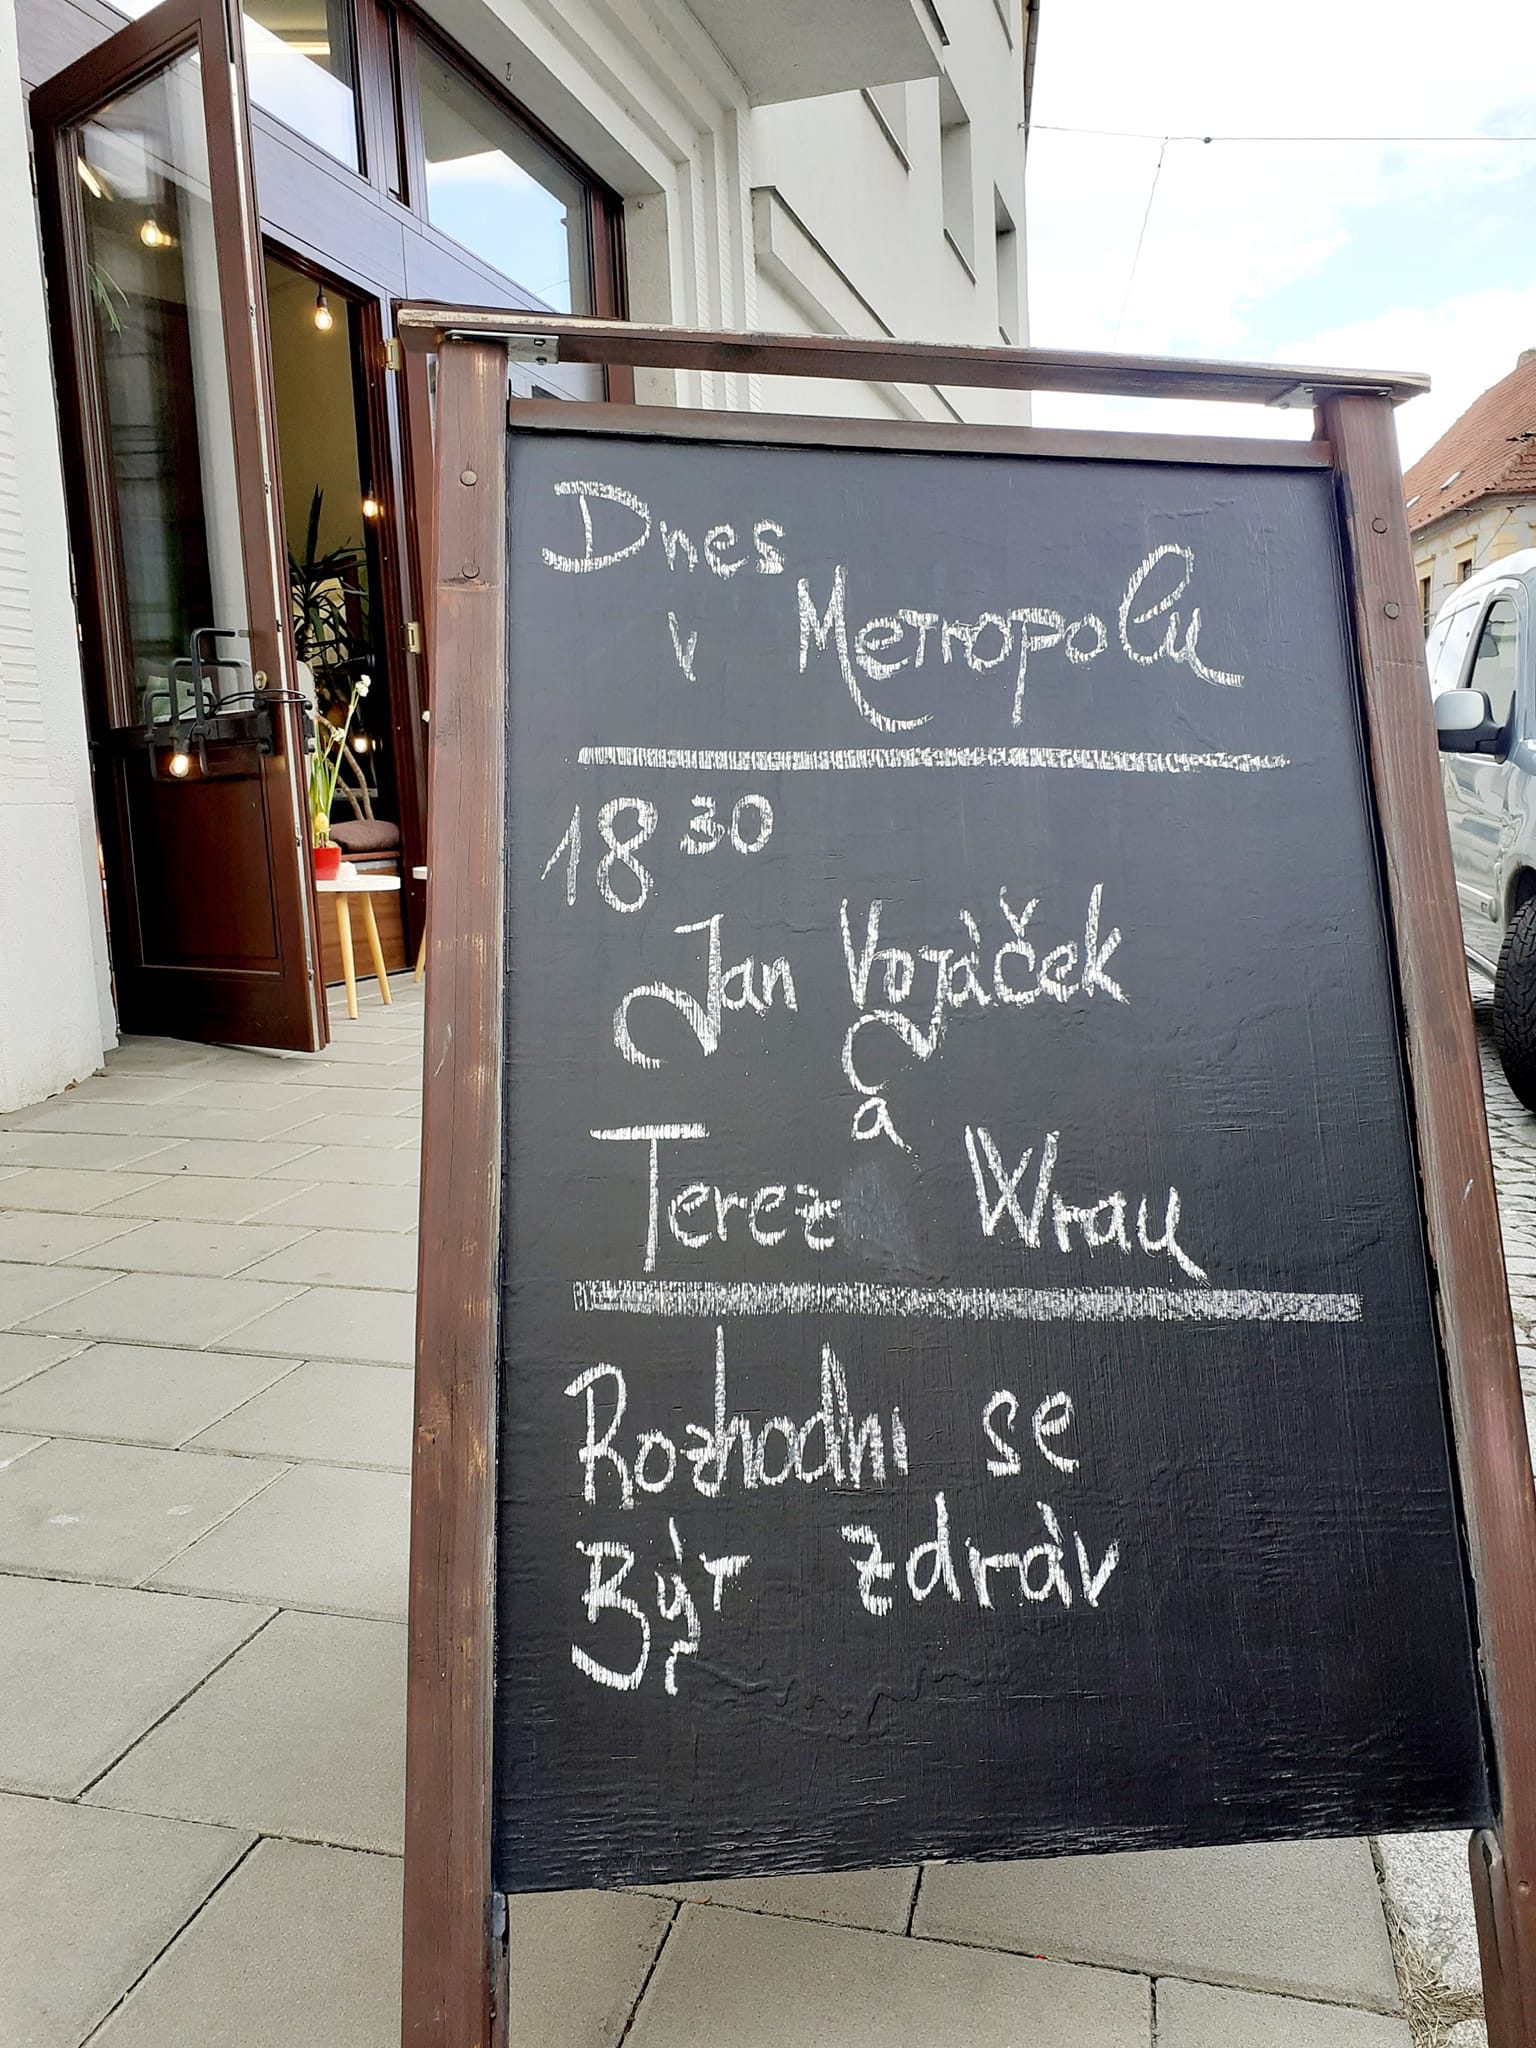 Dnes
v Metropolu
18 30
Jan Vojáček
a
Terez Wrau
Rozhodni se
Být zdráv